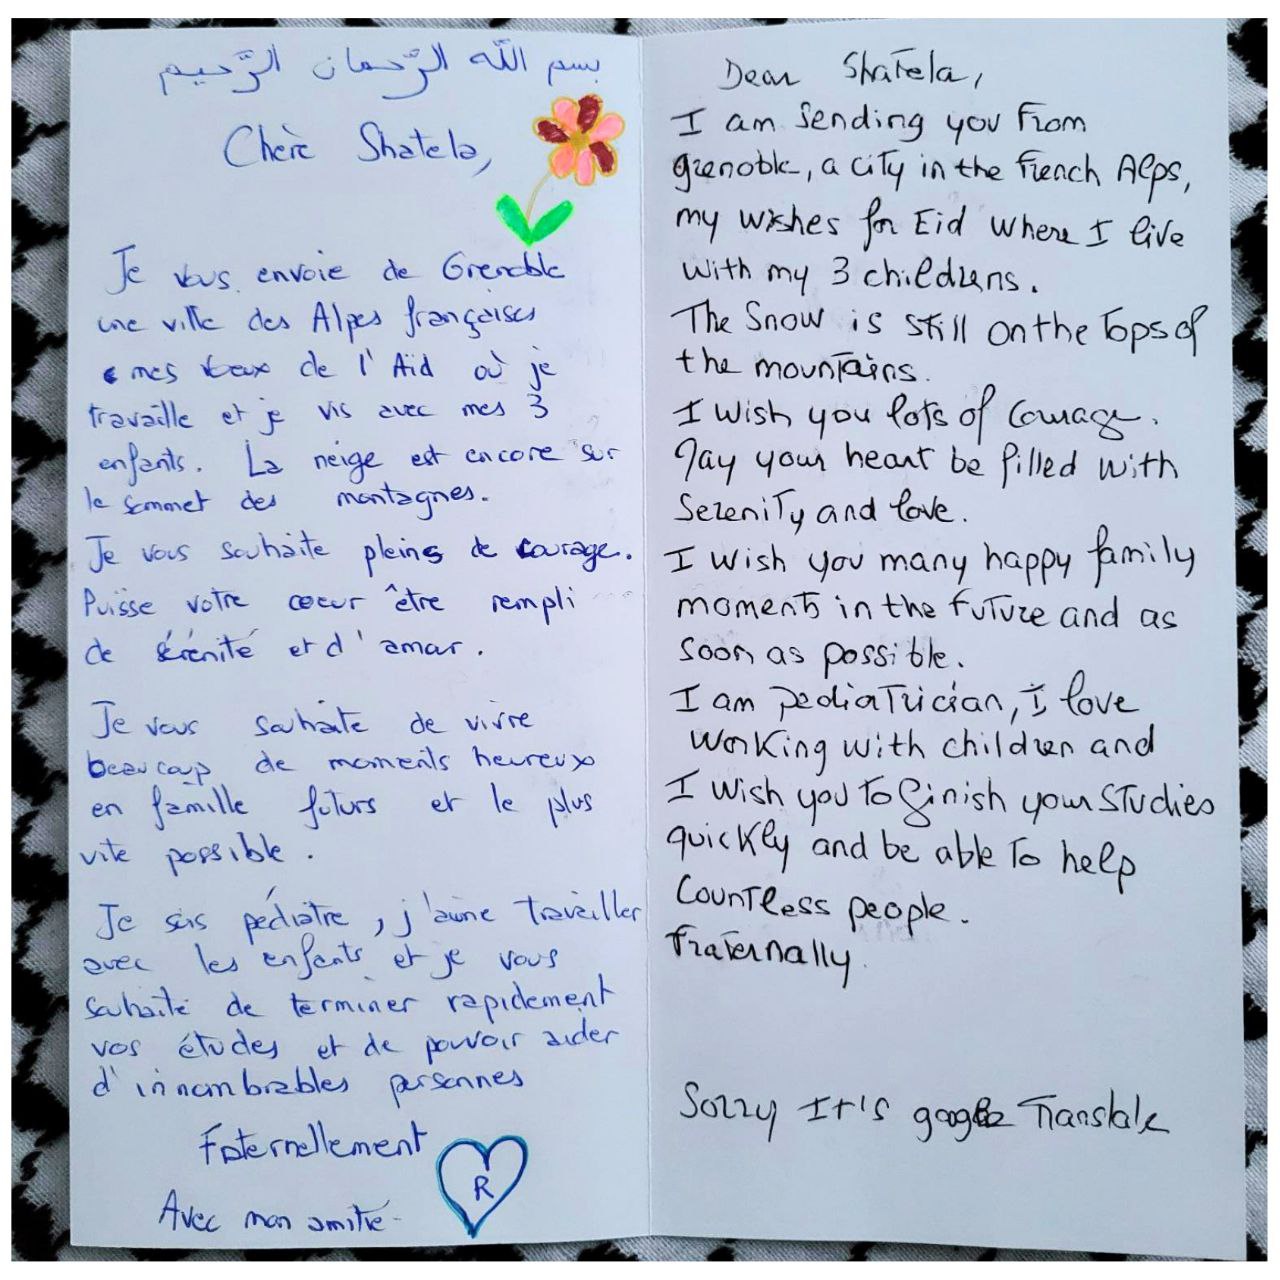 بسم الله الرّحمان الرّحيم
Chère Shatela,
Je vous envoie de Grenoble
une ville des Alpes françaises
mes vœux de l'Aid où je
travaille et je vis avec mes 3
enfants. La neige est encore sur
le sommet des montagnes.
Je vous souhaite pleins de courage.
Puisse votre coeur être rempli
de sérénité et d'amour.
Je vous souhaite de vivre
beaucoup de moments heureux
en famille futurs et le plus
vite possible.
Je suis pédiatre, j'aime travailler
avec les enfants et je vous
souhaite de terminer rapidement
vos études et de pouvoir aider
d'innombrables personnes
Fraternellement
Avec mon amitié
R
Dear Shatela,
I am sending you from
grenoble, a city in the french Alps,
my wishes for Eid where I live
with my 3 childrens.
The Snow is still on the tops of
the mountains.
I wish you lots of courage.
May your heart be filled with
Serenity and love.
I wish you many happy family
moments in the future and as
soon as possible.
I am pediatrician, I love
working with children and
I wish you to finish your studies
quickly and be able to help
countless people.
fraternally.
Sorry It's google Translate